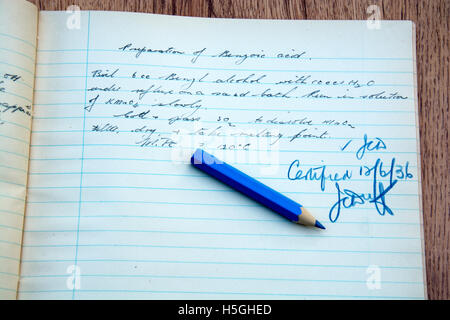 Preparation of Benzoic acid.
Boil 6cc Benzyl alcohol with 100cc H2O
under reflux on a sand bath. Run in solution
of KMnO4 slowly.
Cool & pass SO2 to dissolve MnO2
filter, dry, & take melting point.
M.Pt 120°C
Certified 12/6/36
alamy
H5GHED